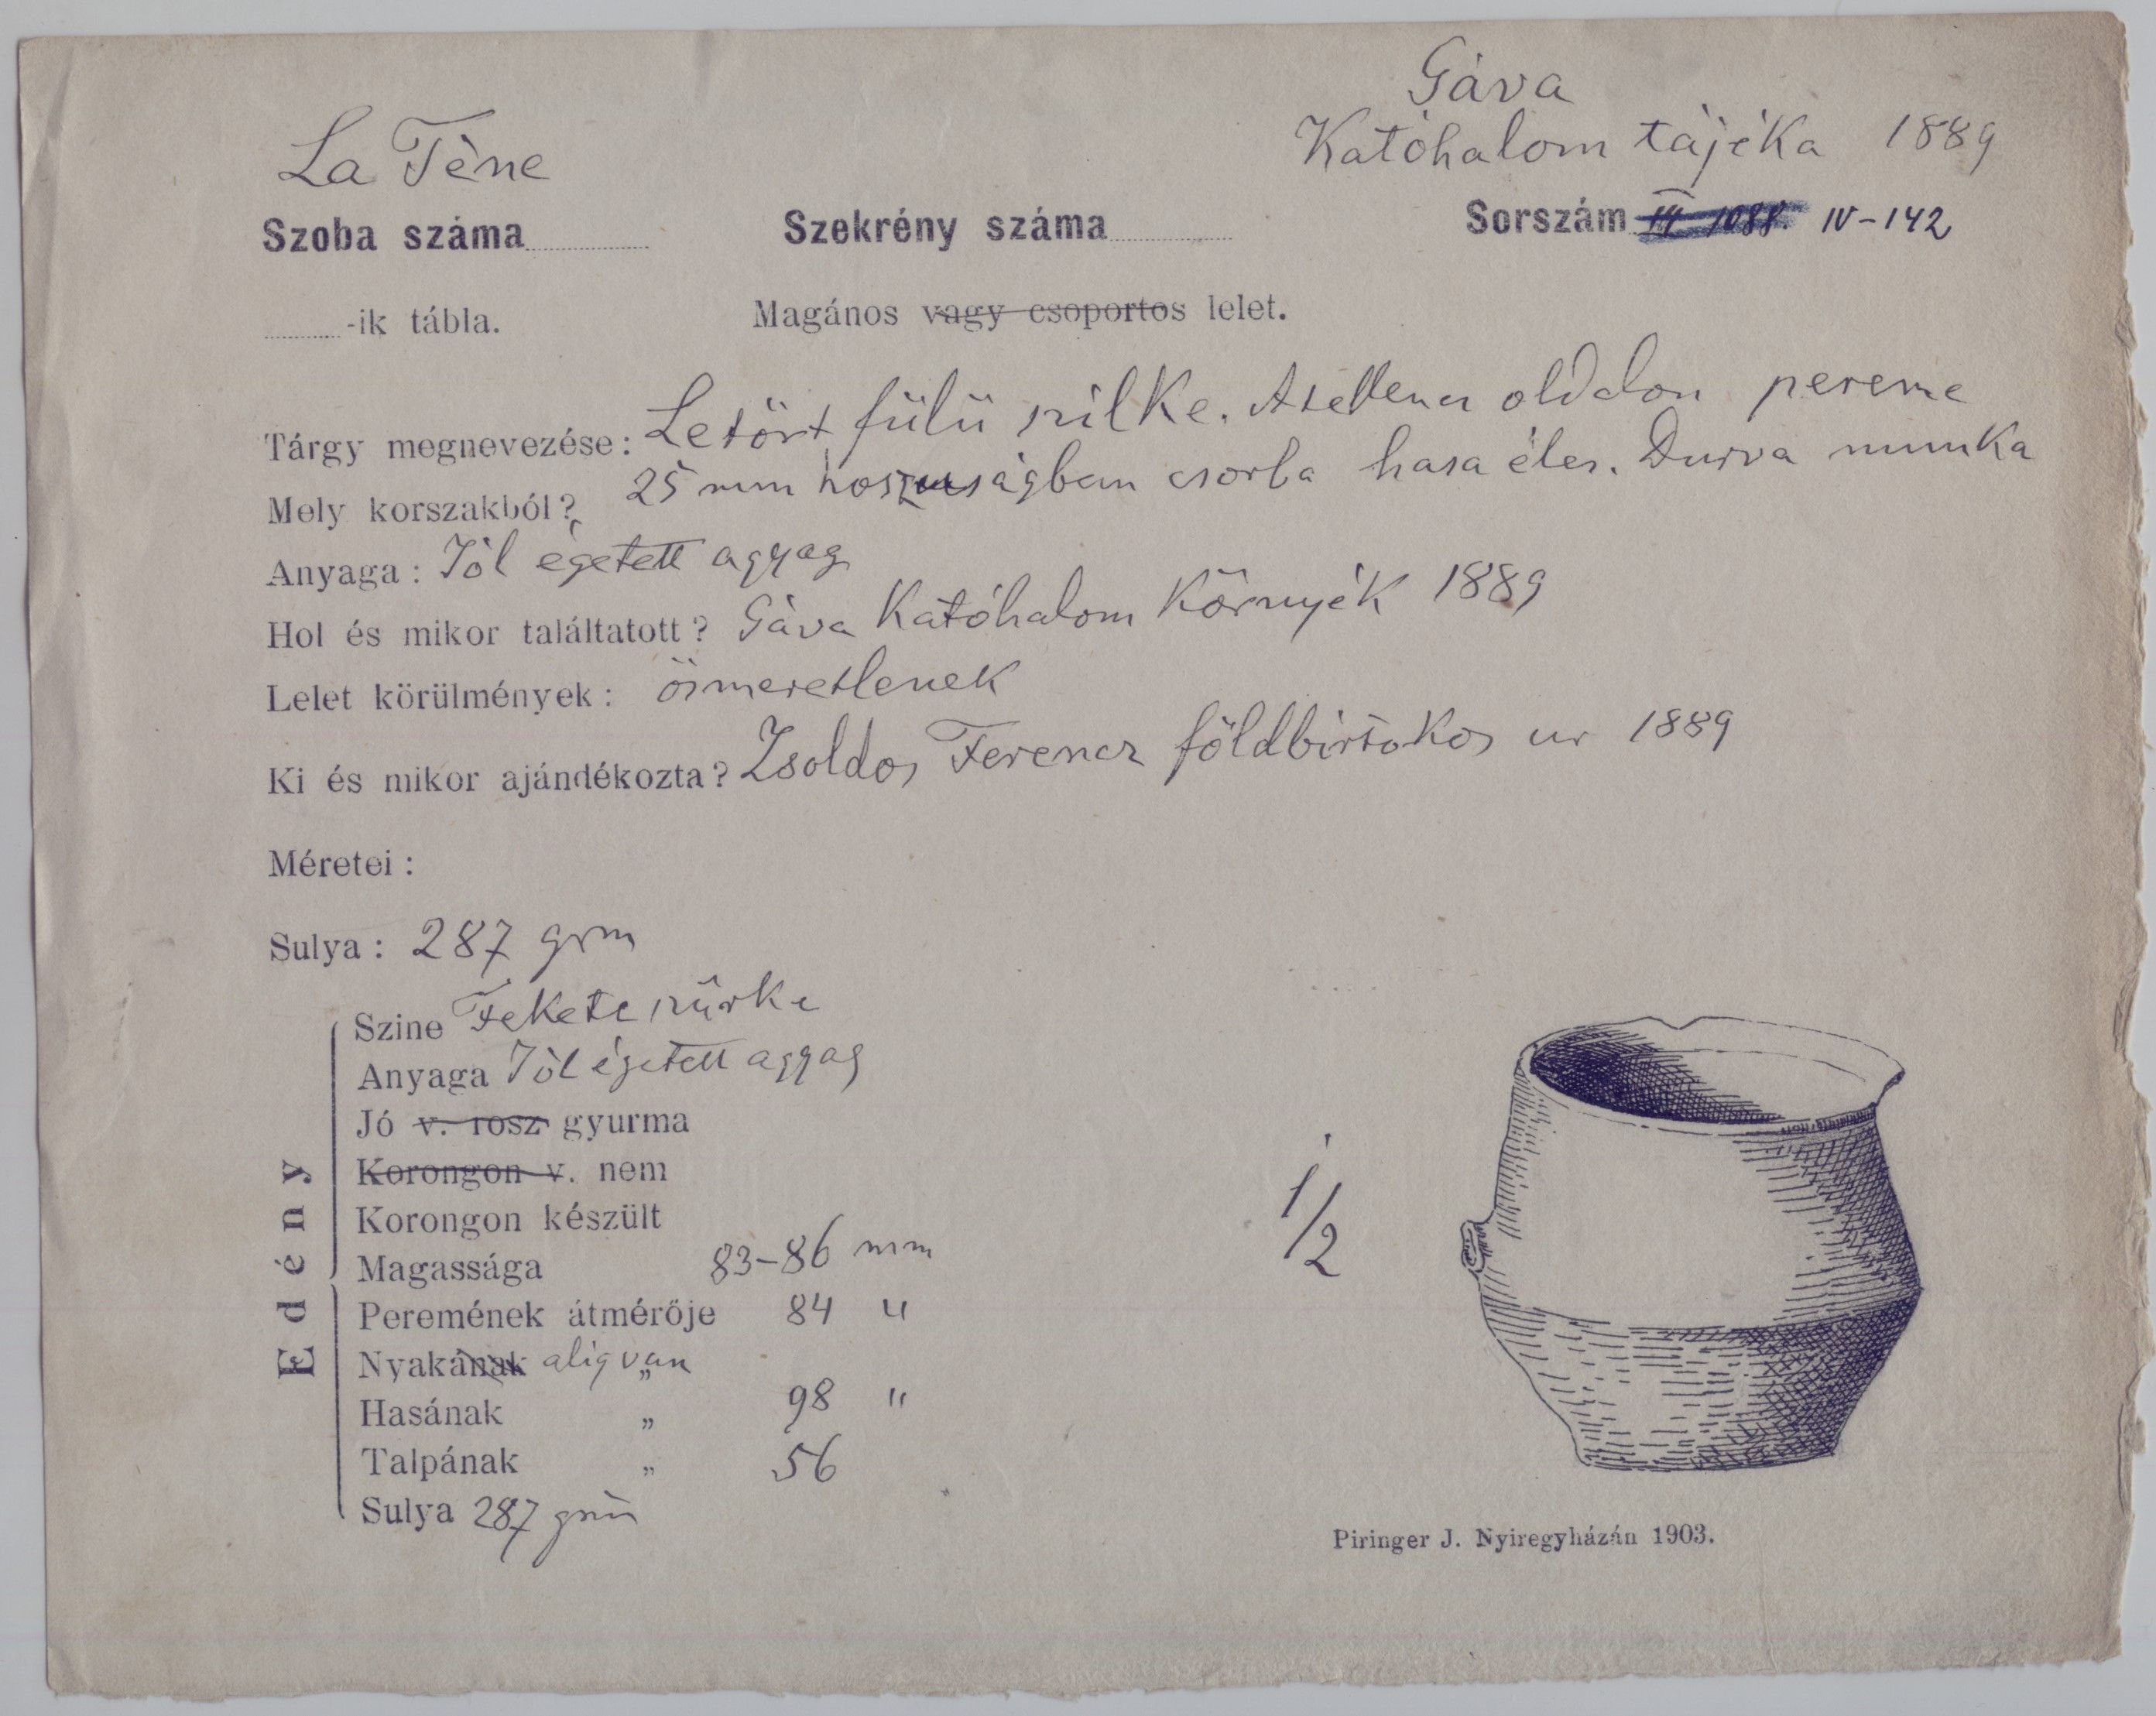 Gáva
La Tène
Katóhalom tájéka 1889
Szoba száma
Szekrény száma
Sorszám III 1088. IV-142
-ik tábla.
Magános vagy csoportos lelet.
Tárgy megnevezése: Letört fülü szilke. Atellenes oldalon pereme
25 mm hoszuságban csorba hasa éles. Durva munka
Mely korszakból?
Anyaga: Jól égetett agyag
Hol és mikor találtatott? Gáva Katóhalom Környék 1889
Lelet körülmények: ösmeretlenek
Ki és mikor ajándékozta? Zsoldos Ferencz földbirtokos ur 1889
Méretei:
Sulya: 287 grm
Edény
Szine Fekete szürke
Anyaga Jól égetett agyag
Jó v. rosz gyurma
Korongon v. nem
Korongon készült
Magassága 83-86 mm
Peremének átmérője 84 "
Nyakának alig van "
Hasának " 98 "
Talpának " 56
Sulya 287 grm
1/2
Piringer J. Nyiregyházán 1903.